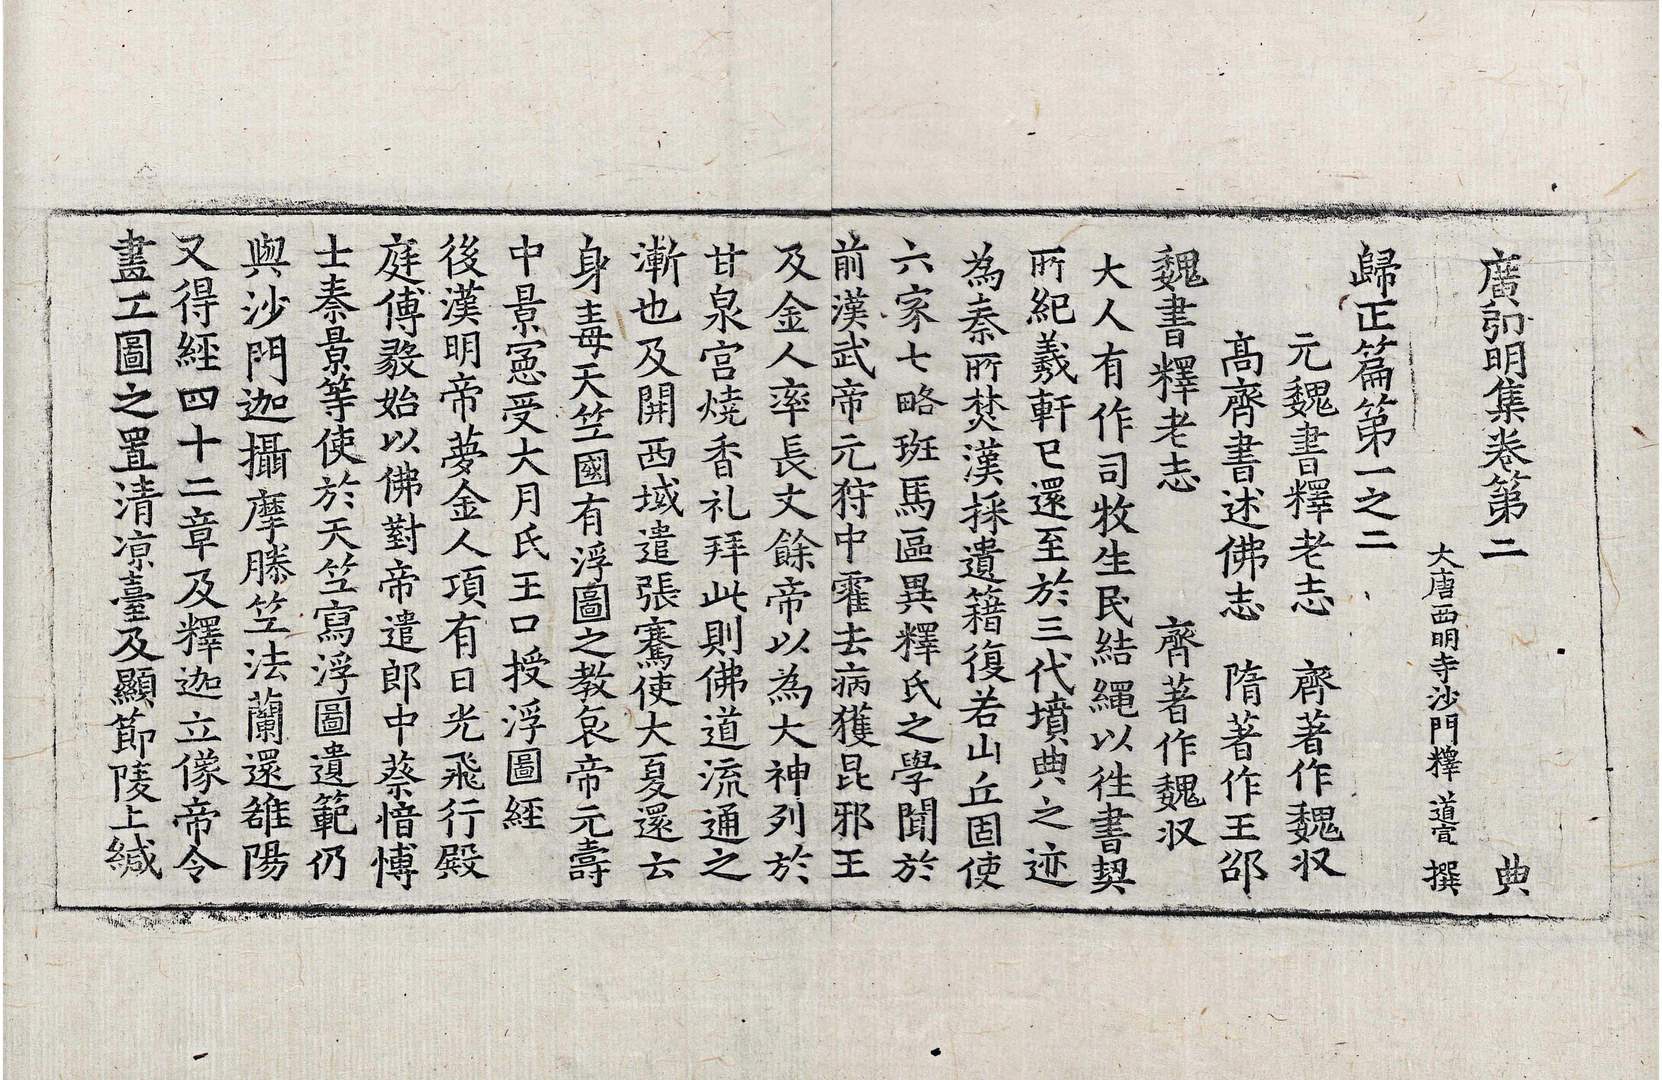 廣弘明集卷第二 典
大唐西明寺沙門釋 道宣 撰
歸正篇第一之二
元魏書釋老志 齊著作魏収
高齊書述佛志 隋著作王邵
魏書釋老志 齊著作魏収
大人有作司牧生民結繩以徃書契
所紀羲軒已還至於三代墳典之迹
為秦所焚漢採遺籍復若山丘固使
六家七略班馬區異釋氏之學聞於
前漢武帝元狩中霍去病獲昆邪王
及金人率長丈餘帝以為大神列於
甘泉宮燒香礼拜此則佛道流通之
漸也及開西域遣張騫使大夏還云
身毒天竺國有浮圖之教哀帝元壽
中景憲受大月氏王口授浮圖經
後漢明帝夢金人項有日光飛行殿
庭傅毅始以佛對帝遣郎中蔡愔博
士秦景等使於天竺寫浮圖遺範仍
與沙門迦攝摩騰竺法蘭還雒陽
又得經四十二章及釋迦立像帝令
畫工圖之置清凉臺及顯節陵上緘